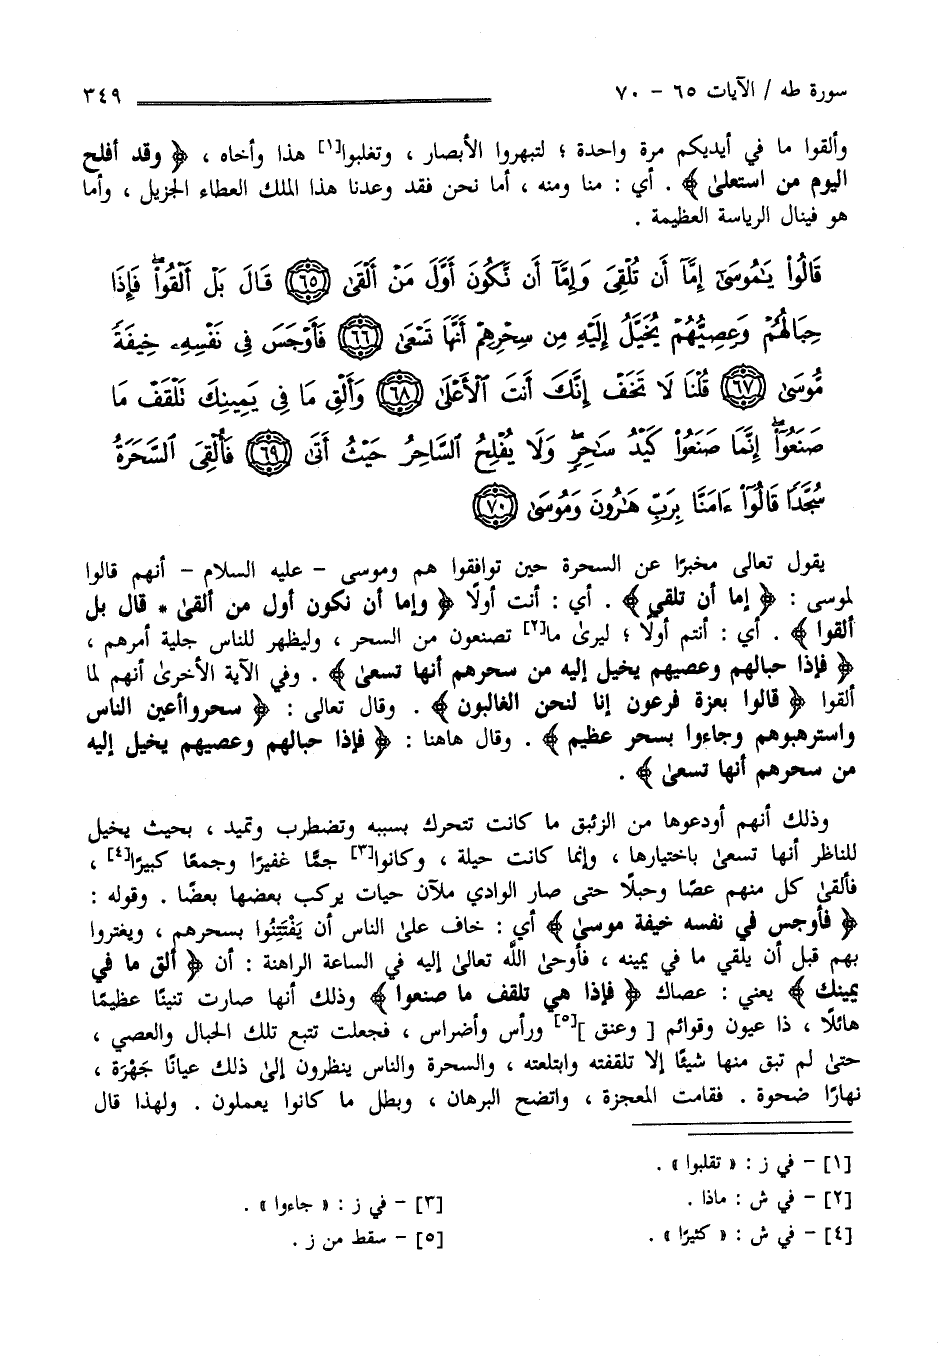 سورة طه / الآيات ٦٥ - ٧٠ ٣٤٩
وألقوا ما في أيديكم مرة واحدة ؛ لتبهروا الأبصار ، وتغلبوا[١] هذا وأخاه ، ﴿ وقد أفلح
اليوم من استعلىٰ ﴾ . أي : منا ومنه ، أما نحن فقد وعدنا هذا الملك العطاء الجزيل ، وأما
هو فينال الرياسة العظيمة .
قَالُواْ يَٰمُوسَىٰٓ إِمَّآ أَن تُلۡقِيَ وَإِمَّآ أَن نَّكُونَ أَوَّلَ مَنۡ أَلۡقَىٰ ٦٥ قَالَ بَلۡ أَلۡقُواْۖ فَإِذَا
حِبَالُهُمۡ وَعِصِيُّهُمۡ يُخَيَّلُ إِلَيۡهِ مِن سِحۡرِهِمۡ أَنَّهَا تَسۡعَىٰ ٦٦ فَأَوۡجَسَ فِي نَفۡسِهِۦ خِيفَةٗ
مُّوسَىٰ ٦٧ قُلۡنَا لَا تَخَفۡ إِنَّكَ أَنتَ ٱلۡأَعۡلَىٰ ٦٨ وَأَلۡقِ مَا فِي يَمِينِكَ تَلۡقَفۡ مَا
صَنَعُوٓاْۖ إِنَّمَا صَنَعُواْ كَيۡدُ سَٰحِرٖۖ وَلَا يُفۡلِحُ ٱلسَّاحِرُ حَيۡثُ أَتَىٰ ٦٩ فَأُلۡقِيَ ٱلسَّحَرَةُ
سُجَّدٗا قَالُوٓاْ ءَامَنَّا بِرَبِّ هَٰرُونَ وَمُوسَىٰ ٧٠
يقول تعالى مخبرًا عن السحرة حين توافقوا هم وموسى - عليه السلام - أنهم قالوا
لموسى : ﴿ إما أن تلقي ﴾ . أي : أنت أولًا ﴿ وإما أن نكون أول من ألقىٰ * قال بل
ألقوا ﴾ . أي : أنتم أولًا ؛ ليرىٰ ما[٢] تصنعون من السحر ، وليظهر للناس جلية أمرهم ،
﴿ فإذا حبالهم وعصيهم يخيل إليه من سحرهم أنها تسعىٰ ﴾ . وفي الآية الأخرىٰ أنهم لما
ألقوا ﴿ قالوا بعزة فرعون إنا لنحن الغالبون ﴾ . وقال تعالى : ﴿ سحروا أعين الناس
واسترهبوهم وجاءوا بسحر عظيم ﴾ . وقال هاهنا : ﴿ فإذا حبالهم وعصيهم يخيل إليه
من سحرهم أنها تسعىٰ ﴾ .
وذلك أنهم أودعوها من الزئبق ما كانت تتحرك بسببه وتضطرب وتميد ، بحيث يخيل
للناظر أنها تسعىٰ باختيارها ، وإنما كانت حيلة ، وكانوا[٣] جمًّا غفيرًا وجمعًا كبيرًا[٤] ،
فألقىٰ كل منهم عصًا وحبلًا حتى صار الوادي ملآن حيات يركب بعضها بعضًا . وقوله :
﴿ فأوجس في نفسه خيفة موسىٰ ﴾ أي : خاف علىٰ الناس أن يَفْتَتِنُوا بسحرهم ، ويغتروا
بهم قبل أن يلقي ما في يمينه ، فأوحىٰ اللَّه تعالىٰ إليه في الساعة الراهنة : أن ﴿ ألق ما في
يمينك ﴾ يعني : عصاك ﴿ فإذا هي تلقف ما صنعوا ﴾ وذلك أنها صارت تنينًا عظيمًا
هائلًا ، ذا عيون وقوائم [ وعنق ][٥] ورأس وأضراس ، فجعلت تتبع تلك الحبال والعصي ،
حتىٰ لم تبق منها شيئًا إلا تلقفته وابتلعته ، والسحرة والناس ينظرون إلىٰ ذلك عيانًا جَهْرَة ،
نهارًا ضحوة . فقامت المعجزة ، واتضح البرهان ، وبطل ما كانوا يعملون . ولهذا قال
[١] - في ز : « تقلبوا » .
[٢] - في ش : ماذا . [٣] - في ز : « جاءوا » .
[٤] - في ش : « كثيرًا » . [٥] - سقط من ز .